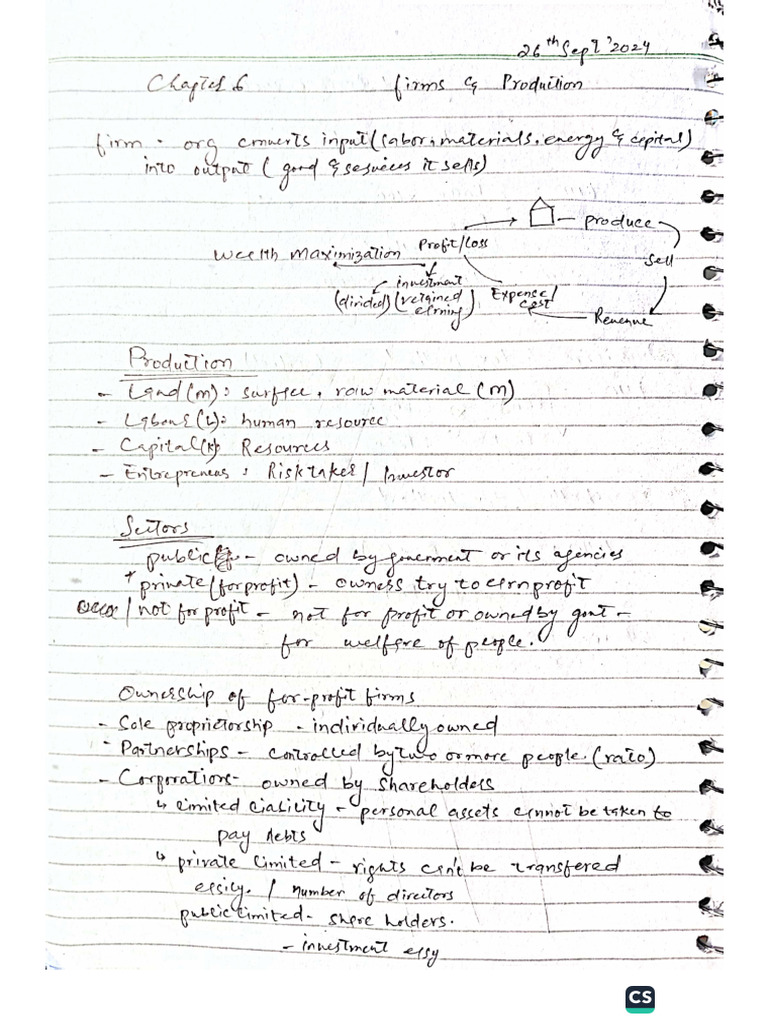 26th Sept '2024
Chapter 6 firms & Production
firm - org converts input (labor, materials, energy & capital)
into output ( good & services it sells)
produce
Profit/Loss
Wealth Maximization
Sell
investment
(divided) (retained
earning)
Expense/
cost
Revenue
Production
- Land (m) : surface, raw material (m)
- Labour (L) : human resource
- Capital (K) Resources
- Entrepreneus : Risk taker / Investor
Sectors
public - owned by government or its agencies
+ private (for profit) - owners try to earn profit
/ not for profit - not for profit or owned by govt -
for welfare of people.
Ownership of for-profit firms
- Sole proprietorship - individually owned
- Partnerships - controlled by two or more people. (ratio)
- Corporations - owned by shareholders
↳ limited liability - personal assets cannot be taken to
pay debts
↳ private limited - rights can't be transfered
easily. / number of directors
public limited - share holders.
- investment easy
CS